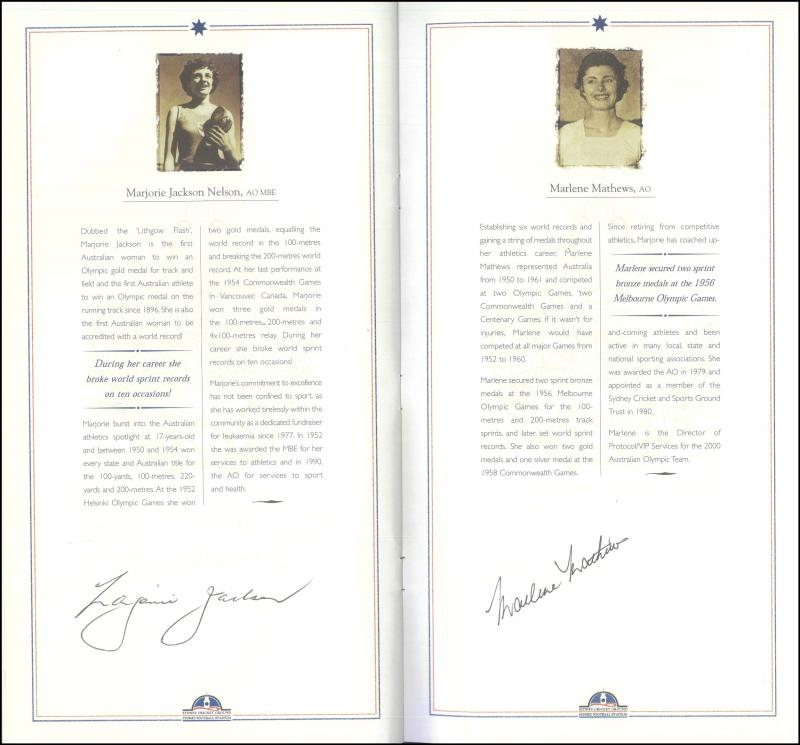 Marjorie Jackson Nelson, AO MBE
Dubbed the 'Lithgow Flash',
Marjorie Jackson is the first
Australian woman to win an
Olympic gold medal for track and
field and the first Australian athlete
to win an Olympic medal on the
running track since 1896. She is also
the first Australian woman to be
accredited with a world record!
During her career she
broke world sprint records
on ten occasions!
Marjorie burst into the Australian
athletics spotlight at 17-years-old
and between 1950 and 1954 won
every state and Australian title for
the 100-yards, 100-metres, 220-
yards and 200-metres. At the 1952
Helsinki Olympic Games she won
two gold medals, equalling the
world record in the 100-metres
and breaking the 200-metres world
record. At her last performance at
the 1954 Commonwealth Games
in Vancouver, Canada, Marjorie
won three gold medals in
the 100-metres,, 200-metres and
4x100-metres relay. During her
career she broke world sprint
records on ten occasions!
Marjorie's commitment to excellence
has not been confined to sport, as
she has worked tirelessly within the
community as a dedicated fundraiser
for leukaemia since 1977. In 1952
she was awarded the MBE for her
services to athletics and in 1990,
the AO for services to sport
and health.
Marjorie Jackson
SYDNEY CRICKET GROUND
SYDNEY FOOTBALL STADIUM
Marlene Mathews, AO
Establishing six world records and
gaining a string of medals throughout
her athletics career, Marlene
Mathews represented Australia
from 1950 to 1961 and competed
at two Olympic Games, two
Commonwealth Games and a
Centenary Games. If it wasn't for
injuries, Marlene would have
competed at all major Games from
1952 to 1960.
Marlene secured two sprint bronze
medals at the 1956 Melbourne
Olympic Games for the 100-
metres and 200-metres track
sprints, and later set world sprint
records. She also won two gold
medals and one silver medal at the
1958 Commonwealth Games.
Since retiring from competitive
athletics, Marjorie has coached up-
Marlene secured two sprint
bronze medals at the 1956
Melbourne Olympic Games.
and-coming athletes and been
active in many local, state and
national sporting associations. She
was awarded the AO in 1979 and
appointed as a member of the
Sydney Cricket and Sports Ground
Trust in 1980.
Marlene is the Director of
Protocol/VIP Services for the 2000
Australian Olympic Team.
Marlene Mathews
SYDNEY CRICKET GROUND
SYDNEY FOOTBALL STADIUM